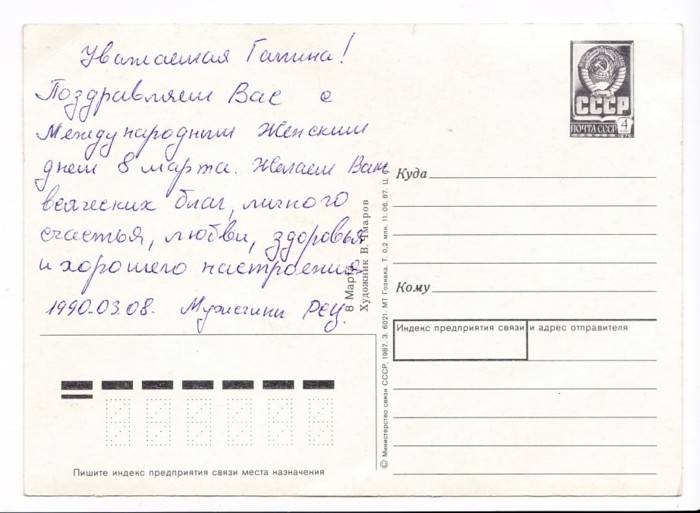 Уважаемая Галина!
Поздравляем Вас с
Международным Женским
днем 8 марта. Желаем Вам
всяческих благ, личного
счастья, любви, здоровья
и хорошего настроения.
1990.03.08. Мужчины РЕЦ.
СССР
ПОЧТА СССР
4
Куда
Кому
Индекс предприятия связи и адрес отправителя
8 Марта
Художник В. Чмаров
© Министерство связи СССР, 1987. З. 6021. МТ Гознака. Т. 0,2 млн. 11.06.87. Ц. 
Пишите индекс предприятия связи места назначения